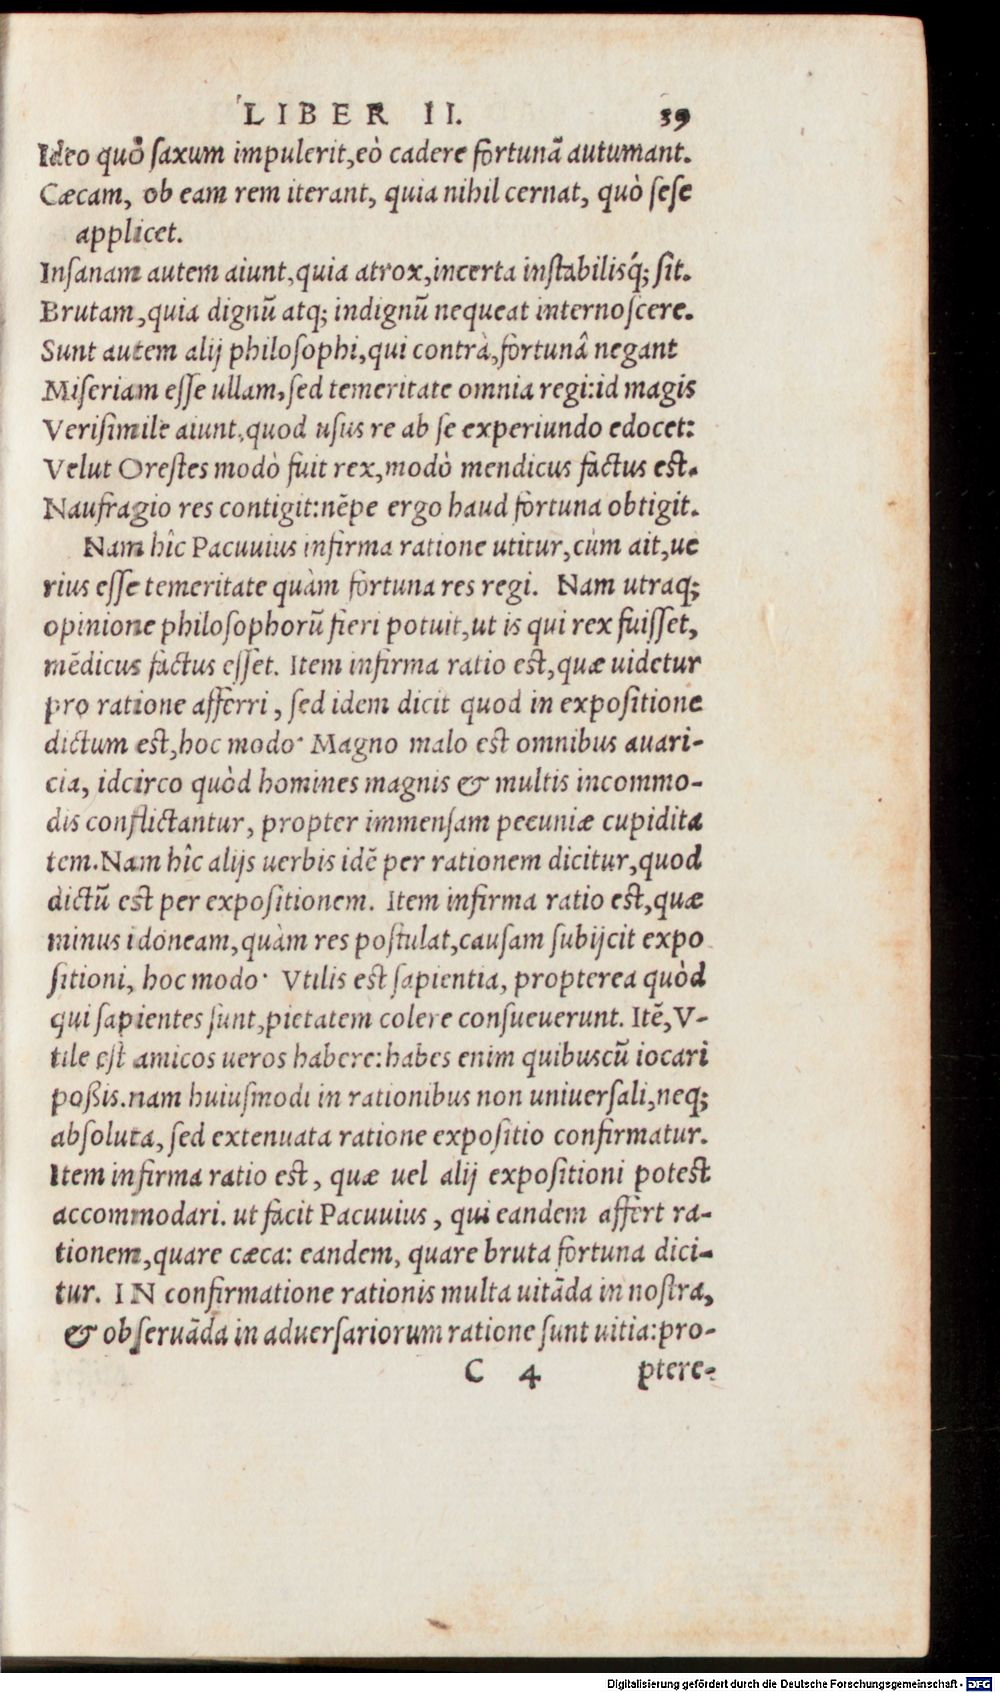 LIBER II. 39
Ideo quò saxum impulerit, eò cadere fortunã autumant.
Cæcam, ob eam rem iterant, quia nihil cernat, quò sese
applicet.
Insanam autem aiunt, quia atrox, incerta instabilisq́; sit.
Brutam, quia dignũ atq; indignũ nequeat internoscere.
Sunt autem alij philosophi, qui contrà, fortunâ negant
Miseriam esse ullam, sed temeritate omnia regi: id magis
Verisimile aiunt, quod usus re ab se experiundo edocet:
Velut Orestes modò fuit rex, modò mendicus factus est.
Naufragio res contigit: nẽpe ergo haud fortuna obtigit.
Nam hîc Pacuuius infirma ratione utitur, cùm ait, ue
rius esse temeritate quàm fortuna res regi. Nam utraq;
opinione philosophorũ fieri potuit, ut is qui rex fuisset,
mẽdicus factus esset. Item infirma ratio est, quæ uidetur
pro ratione afferri, sed idem dicit quod in expositione
dictum est, hoc modo· Magno malo est omnibus auari-
cia, idcirco quòd homines magnis & multis incommo-
dis conflictantur, propter immensam pecuniæ cupidita
tem. Nam hîc alijs uerbis idẽ per rationem dicitur, quod
dictũ est per expositionem. Item infirma ratio est, quæ
minus idoneam, quàm res postulat, causam subijcit expo
sitioni, hoc modo· Vtilis est sapientia, propterea quòd
qui sapientes sunt, pietatem colere consueuerunt. Itẽ, V-
tile est amicos ueros habere: habes enim quibuscũ iocari
poßis. nam huiusmodi in rationibus non uniuersali, neq;
absoluta, sed extenuata ratione expositio confirmatur.
Item infirma ratio est, quæ uel alij expositioni potest
accommodari. ut facit Pacuuius, qui eandem affert ra-
tionem, quare cæca: eandem, quare bruta fortuna dici-
tur. IN confirmatione rationis multa uitãda in nostra,
& obseruãda in aduersariorum ratione sunt uitia: pro-
C 4 ptere-
Digitalisierung gefördert durch die Deutsche Forschungsgemeinschaft - DFG